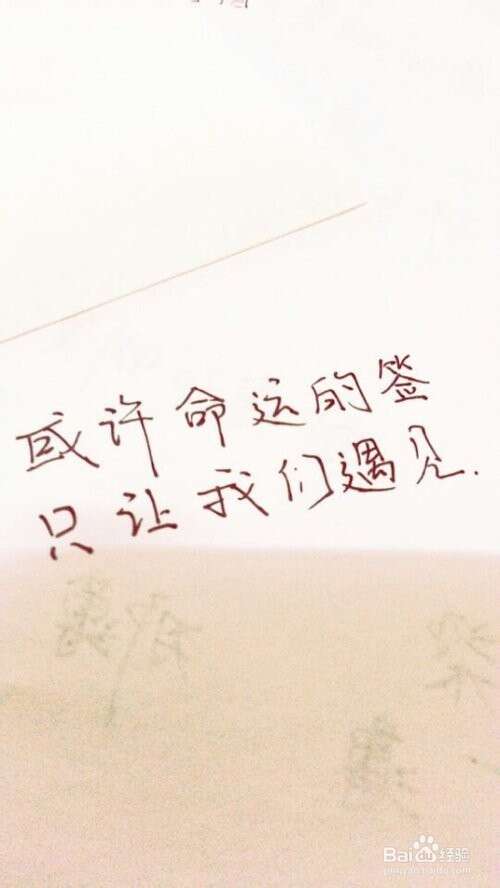 或许命运的签
只让我们遇见.
Bai 经验
jingyan.baidu.com